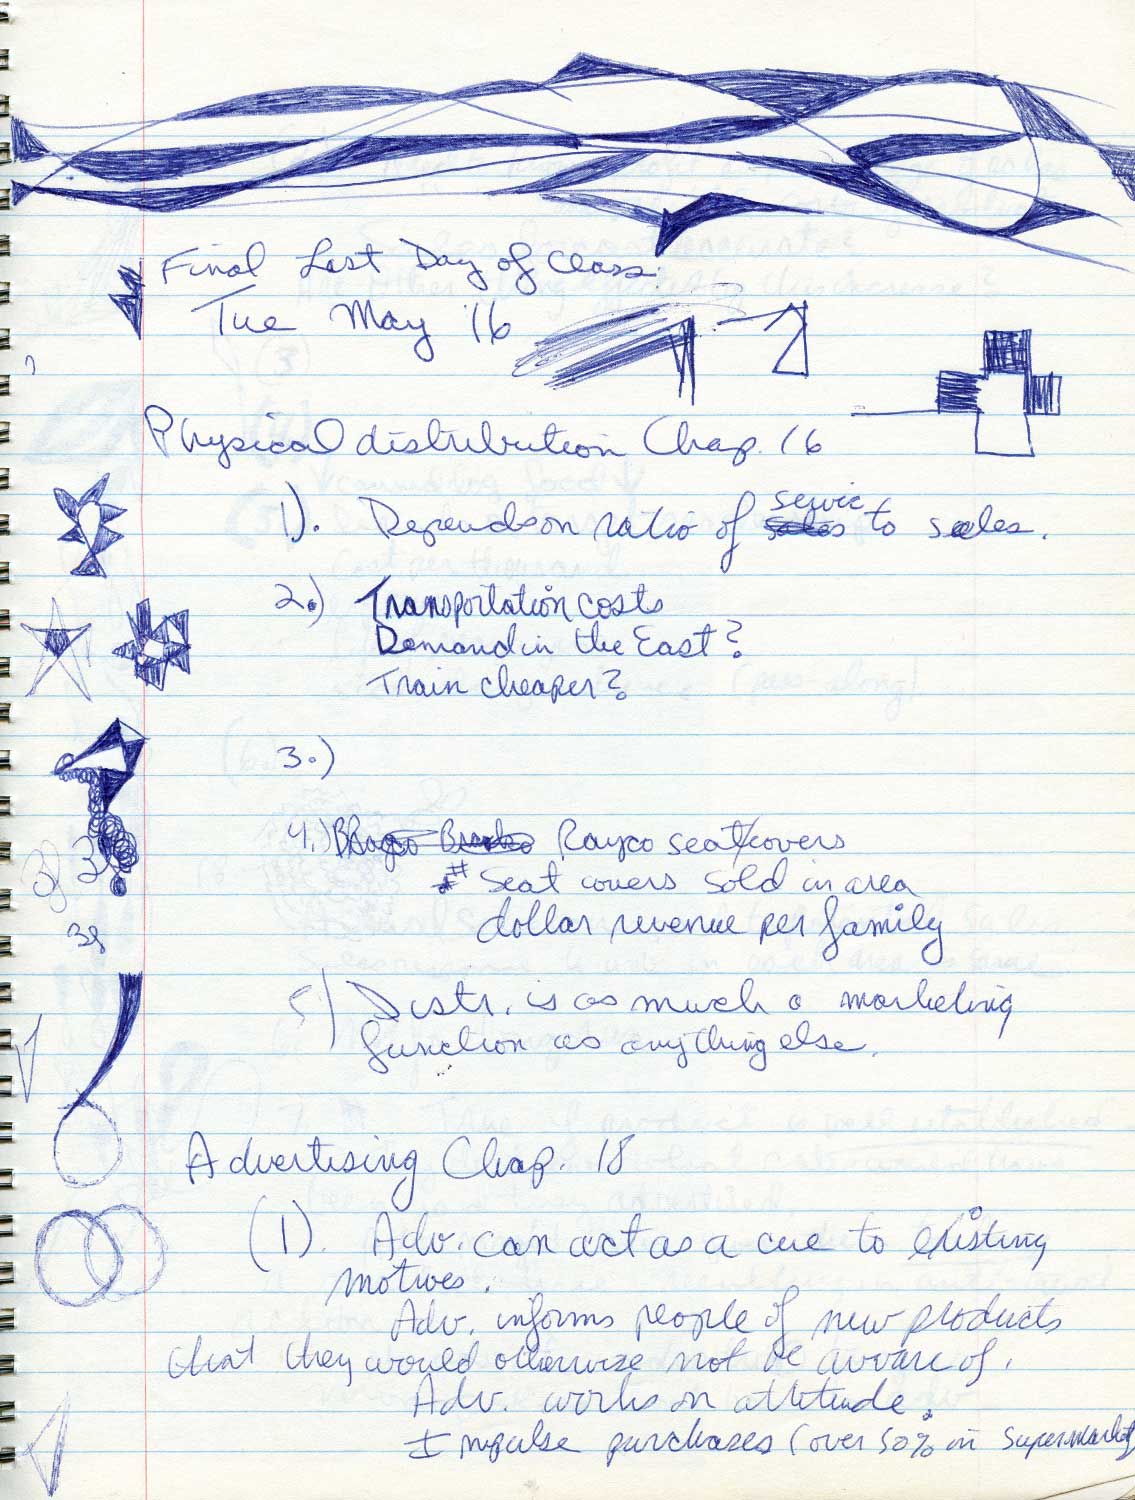 Final Last Day of Class
Tue May 16
Physical distribution Chap. 16
1). Depends on ratio of service to sales.
2.) Transportation costs
Demand in the East?
Train cheaper?
3.)
4.) Rayco seat covers
# seat covers sold in area
dollar revenue per family
5) Distr. is as much a marketing
function as anything else.
Advertising Chap. 18
(1). Adv. can act as a cue to existing
motives.
Adv. informs people of new products
that they would otherwise not be aware of.
Adv. works on attitude.
Impulse purchases (over 50% in supermarkets
3)
3
38